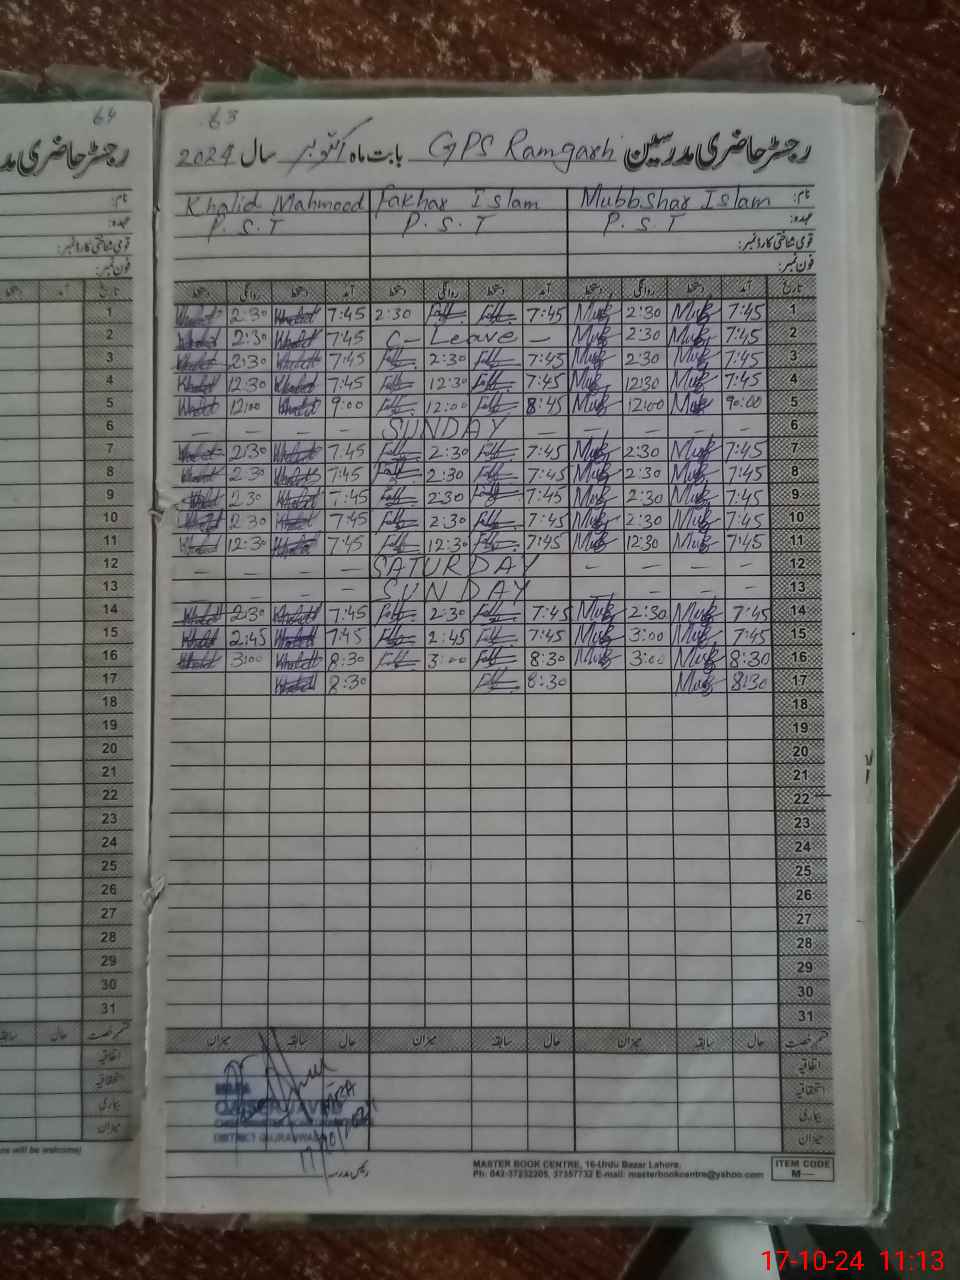 64
63
رجسٹر حاضری مدرسین GPS Ramgarh بابت ماہ اکتوبر سال 2024
رجسٹر حاضری مد
نام: Mubbshar Islam Fakhar Islam Khalid Mahmood
عہدہ: P.S.T P.S.T P.S.T
قومی شناختی کارڈ نمبر:
فون نمبر:
تاریخ آمد دستخط روانگی دستخط آمد دستخط روانگی دستخط آمد دستخط روانگی دستخط
1 7:45 Mub 2:30 Mub 7:45 2:30 7:45 Khalid 2:30 Khalid
2 7:45 Mub 2:30 Mub C - Leave - 7:45 Khalid 2:30 Khalid
3 7:45 Mub 2:30 Mub 7:45 2:30 7:45 Khalid 2:30 Khalid
4 7:45 Mub 12:30 Mub 7:45 12:30 7:45 Khalid 12:30 Khalid
5 90:00 Mub 12:00 Mub 8:45 12:00 9:00 Khalid 12:00 Khalid
6 — — — — SUNDAY — — — —
7 7:45 Mub 2:30 Mub 7:45 2:30 7:45 Khalid 2:30 Khalid
8 7:45 Mub 2:30 Mub 7:45 2:30 7:45 Khalid 2:30 Khalid
9 7:45 Mub 2:30 Mub 7:45 2:30 7:45 Khalid 2:30 Khalid
10 7:45 Mub 2:30 Mub 7:45 2:30 7:45 Khalid 2:30 Khalid
11 7:45 Mub 12:30 Mub 7:45 12:30 7:45 Khalid 12:30 Khalid
12 — — — — SATURDAY — — — —
13 — — — — SUNDAY — — — —
14 7:45 Mub 2:30 Mub 7:45 2:30 7:45 Khalid 2:30 Khalid
15 7:45 Mub 3:00 Mub 7:45 2:45 7:45 Khalid 2:45 Khalid
16 8:30 Mub 3:00 Mub 8:30 3:00 8:30 Khalid 3:00 Khalid
17 8:30 Mub 8:30 8:30 Khalid
18
19
20
21
22
23
24
25
26
27
28
29
30
31
قسم رخصت حال سابقہ میزان حال سابقہ میزان حال سابقہ میزان
اتفاقیہ
استحقاقیہ
بیماری
میزان
MEA
17/10/2024
رئیس مدرسہ
MASTER BOOK CENTRE, 16-Urdu Bazar Lahore.
Ph: 042-37232205, 37357732 E-mail: masterbookcentre@yahoo.com
ITEM CODE
M—
تاریخ آمد دستخط
1
2
3
4
5
6
7
8
9
10
11
12
13
14
15
16
17
18
19
20
21
22
23
24
25
26
27
28
29
30
31
قسم رخصت حال سابقہ
اتفاقیہ
استحقاقیہ
بیماری
میزان
will be welcome)
17-10-24 11:13